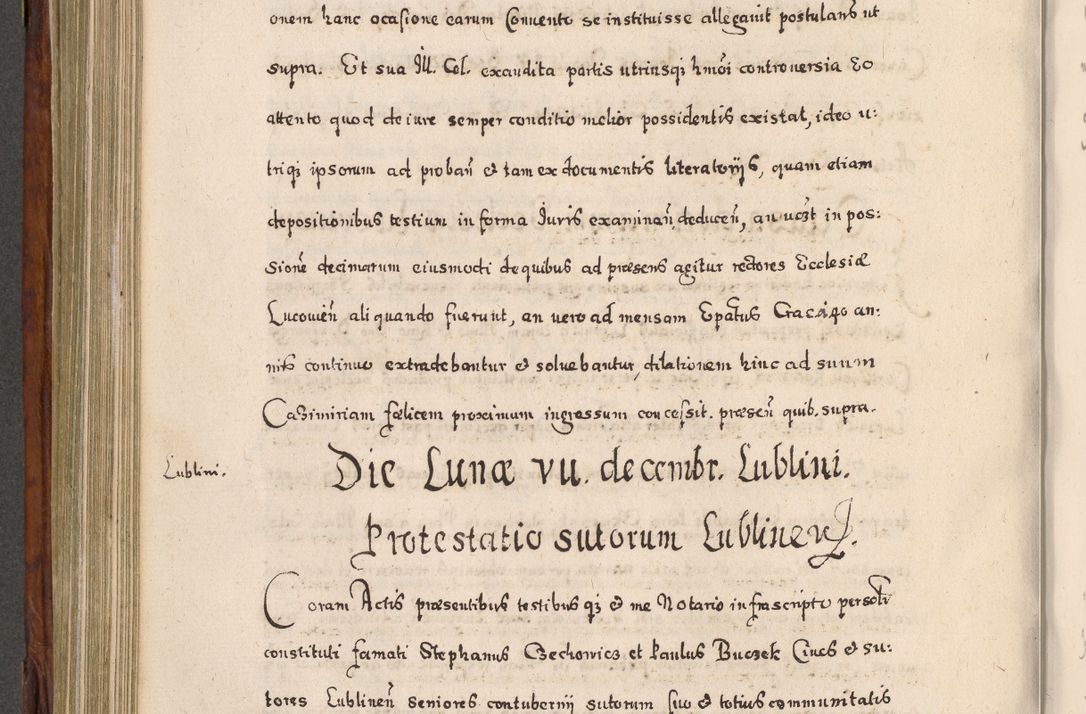 onem hanc ocasione earum Convento se instituisse allegavit postulans ut
supra. Et sua Ill. Cel. exaudita partis utriusqȝ hmōi controversia Eo
attento quod de iure semper conditio melior possidentis existat, ideo u:
triqȝ ipsorum ad proban̄ & tam ex documentis literatorijs, quam etiam
depositionibus testium in forma Iuris examinan̄, deducen̄, an in pos:
sione decimarum eiusmodi de quibus ad præsens agitur rectores Ecclesiæ
Lucovien̄ aliquando fuerunt, an vero ad mensam Epatus Crac an:
nis continuo extradebantur & solvebantur, dilationem hinc ad suum
Cazimiriam fœlicem proximum ingressum concessit. præsen̄ quib. supra.
Lublini.
Die Lunæ vii. decembr. Lublini.
Protestatio sutorum Lublinen̄.
Coram Actis præsentibus testibus qȝ & me Notario infrascripto personlr
constituti famati Stephanus Czechowicz et Paulus Buczek Cives & su:
tores Lublinen̄ seniores contubernij sutorum suo & totius communitatis